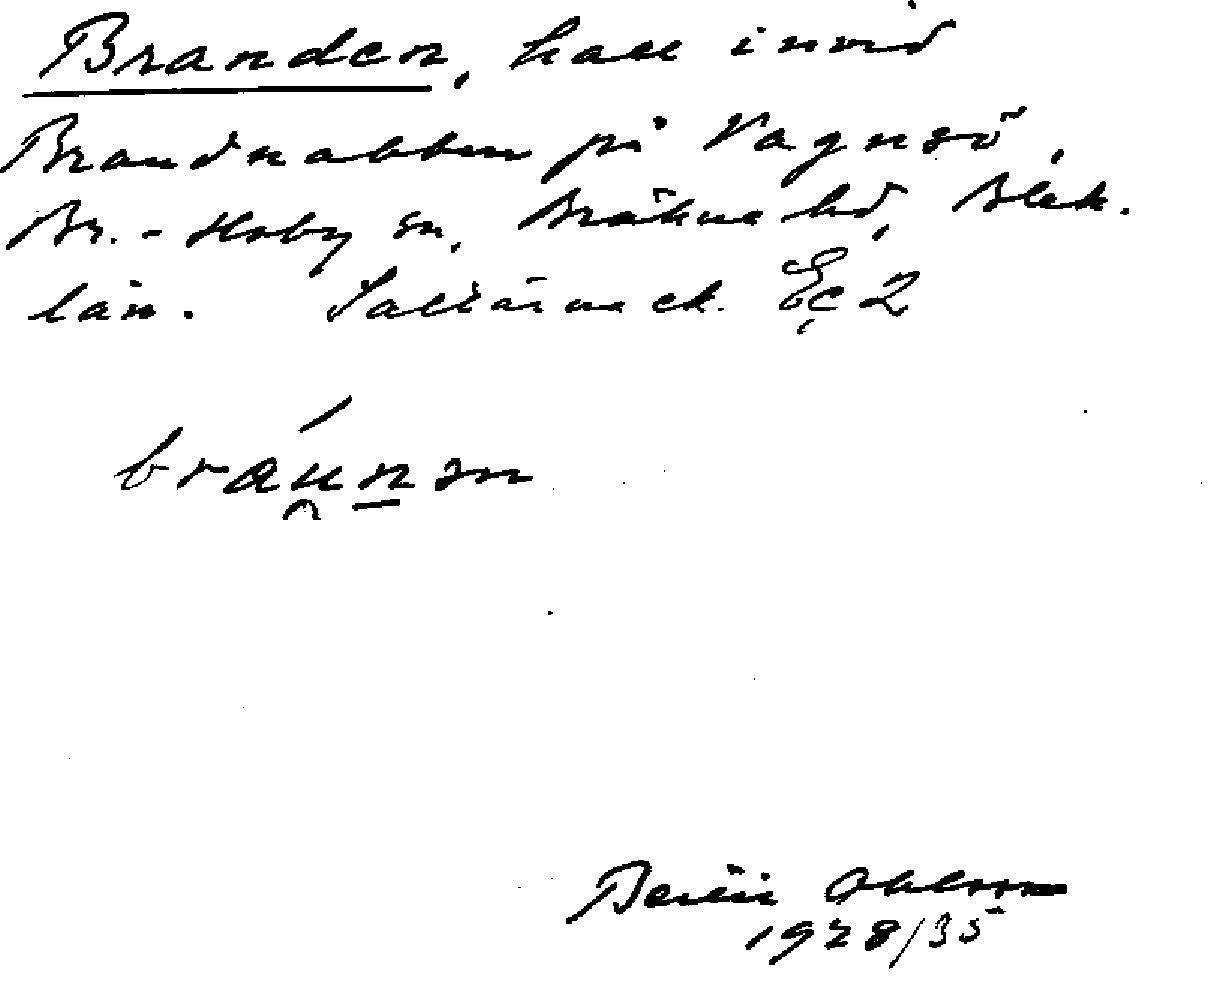 Branden, hall invid
Brandnabben på Vagnsö,
Br.-Hoby sn, Bräkne hd, Blek.
län. Saltärna ek. Ec 2
bráunən
Bertil Ohlsson
1928/35